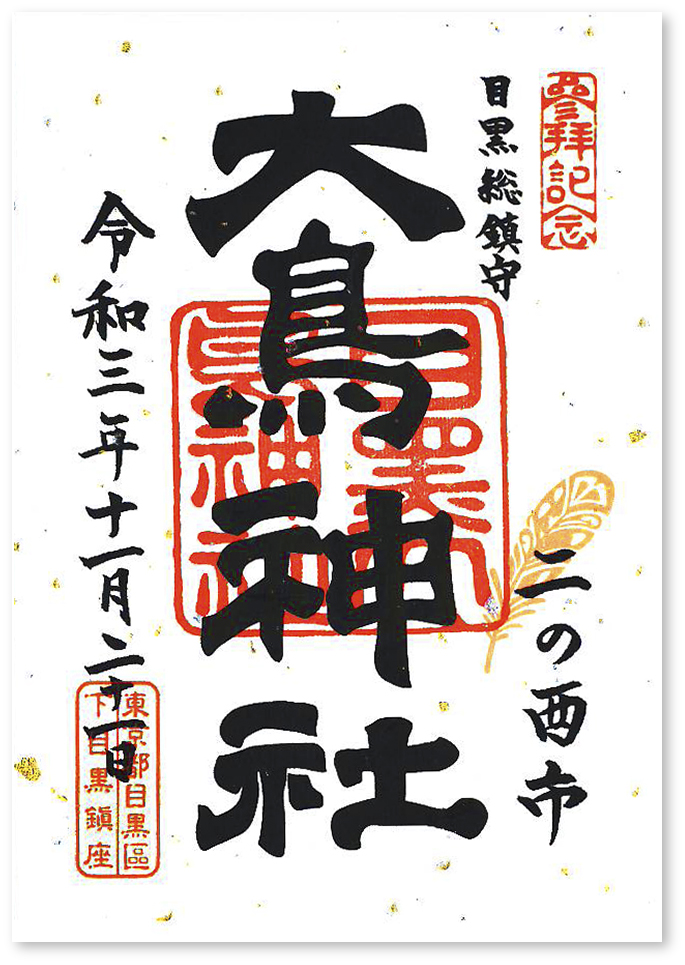 參拝記念
目黒総鎮守
二の酉市
大鳥神社
目黒大
鳥神社
令和三年十一月二十一日
東京都目黒區
下目黒鎮座